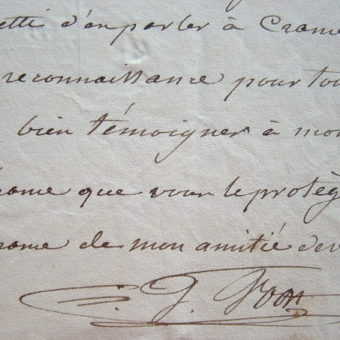 etti d'en parler à Crame
reconnaissance pour tou
bien témoigner à mon
rame que vous le protèg
rame de mon amitié dev